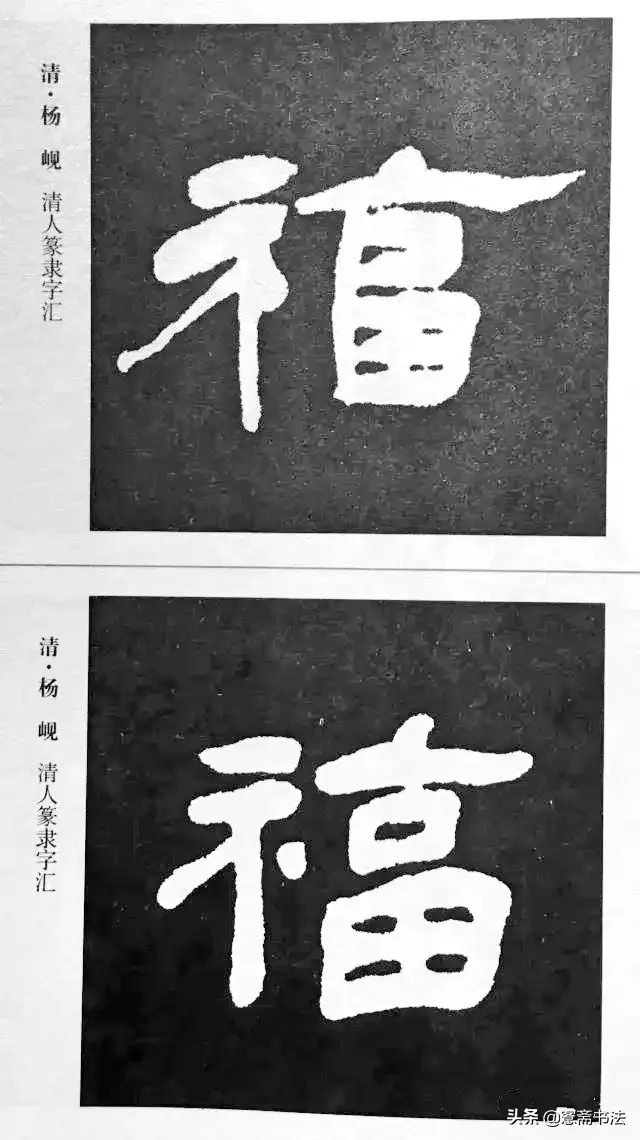 清·杨岘 清人篆隶字汇
福
清·杨岘 清人篆隶字汇
福
头条 @窓斋书法